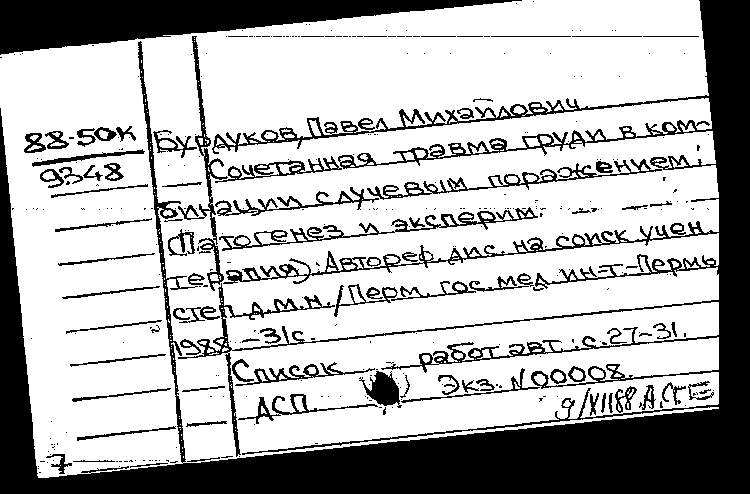 88-50к
9348
Бурдуков, Павел Михайлович.
Сочетанная травма груди в ком-
бинации с лучевым поражением:
(Патогенез и эксперим.
терапия): Автореф. дис. на соиск учен.
степ д.м.н. / Перм. гос. мед. ин-т.-Пермь,
1988. -31с.
Список работ авт.: с.27-31.
Экз. N00008.
АСП.
9/XII88.
7